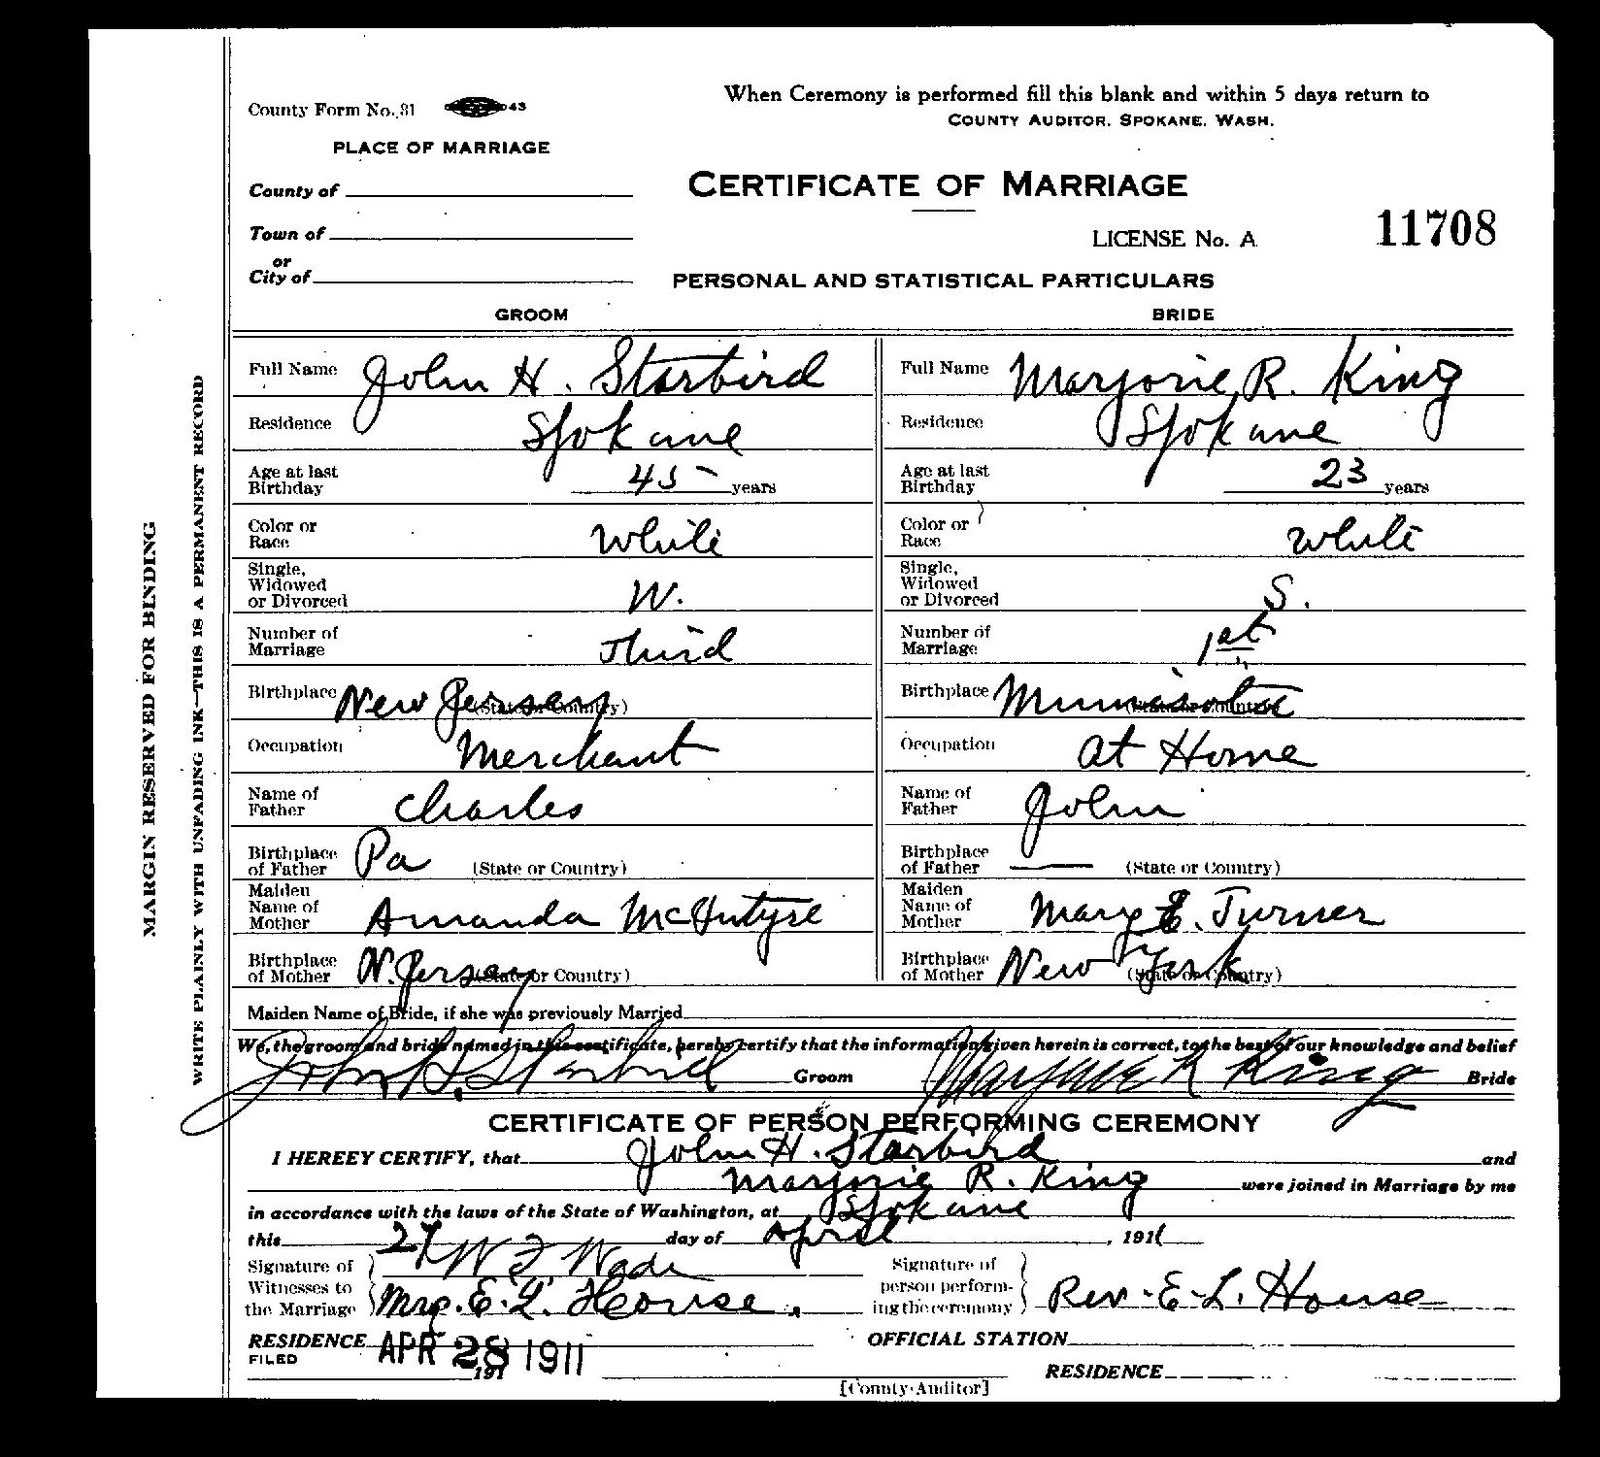 County Form No. 81 43
When Ceremony is performed fill this blank and within 5 days return to
COUNTY AUDITOR. SPOKANE. WASH.
PLACE OF MARRIAGE
County of
CERTIFICATE OF MARRIAGE
Town of
LICENSE No. A 11708
or
City of
PERSONAL AND STATISTICAL PARTICULARS
GROOM
BRIDE
Full Name John H. Starbird
Full Name Marjorie R. King
Residence Spokane
Residence Spokane
Age at last Birthday 45 years
Age at last Birthday 23 years
Color or Race White
Color or Race White
Single, Widowed or Divorced W.
Single, Widowed or Divorced S.
Number of Marriage Third
Number of Marriage 1st
Birthplace New Jersey (State or Country)
Birthplace Minnesota (State or Country)
Occupation Merchant
Occupation at Home
Name of Father Charles
Name of Father John
Birthplace of Father Pa (State or Country)
Birthplace of Father — (State or Country)
Maiden Name of Mother Amanda McIntyre
Maiden Name of Mother Mary E. Turner
Birthplace of Mother N. Jersey (State or Country)
Birthplace of Mother New York (State or Country)
Maiden Name of Bride, if she was previously Married
We, the groom and bride named in this certificate, hereby certify that the information given herein is correct, to the best of our knowledge and belief
John H. Starbird Groom Marjorie R King Bride
CERTIFICATE OF PERSON PERFORMING CEREMONY
I HEREEY CERTIFY, that John H. Starbird and
Marjorie R. King were joined in Marriage by me
in accordance with the laws of the State of Washington, at Spokane
this 27 day of April, 1911
Signature of Witnesses to the Marriage W F Wade
Mrs. E. L. House.
Signature of person performing the ceremony Rev. E. L. House
RESIDENCE
OFFICIAL STATION
FILED APR 28 1911
191
RESIDENCE
[County Auditor]
MARGIN RESERVED FOR BINDING
WRITE PLAINLY WITH UNFADING INK—THIS IS A PERMANENT RECORD